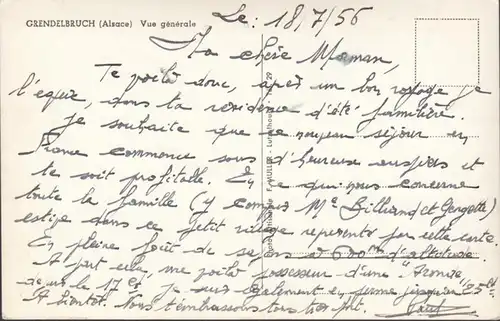 GRENDELBRUCH (Alsace) Vue générale
Le : 18/7/56
Ma chère Maman,
Te voilà donc, après un bon voyage je
l'espère, dans ta résidence d'été familière.
Je souhaite que ce nouveau séjour en
France commence sous d'heureux auspices et
te soit profitable. En ce qui nous concerne
toute la famille (y compris Me Gilliand et Georgette)
estive dans ce petit village représenté par cette carte
En pleine forêt de sapins à d'altitude
A part cela, me voilà possesseur d'une "Aronde"
depuis le 17 ct. Je suis également en jusqu'au 25 ct
A bientôt. Nous t'embrassons tous très fort.
MULLER